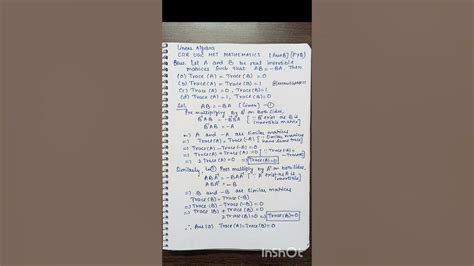 Linear Algebra
CSIR UGC NET MATHEMATICS (Part B) (PYQ)
Ques. Let A and B be real invertible
matrices such that AB = -BA. Then
(a) Trace (A) = Trace (B) = 0
(b) Trace (A) = Trace (B) = 1
(c) Trace (A) = 0, Trace (B) = 1
(d) Trace (A) = 1, Trace (B) = 0
Sol. AB = -BA (Given) - ①
Pre multiplying by B⁻¹ on both sides,
B⁻¹AB = -B⁻¹BA [∵ B⁻¹ exist as B is
invertible matrix]
B⁻¹AB = -A
⇒ A and -A are similar matrices
⇒ Trace (A) = Trace (-A) [∵ Similar matrices
have same trace]
⇒ Trace (A) - Trace (-A) = 0
⇒ Trace (A) + Trace (A) = 0 [∵ Trace (-A) =
- Trace (A)]
⇒ 2 Trace (A) = 0 ⇒ Trace (A) = 0
Similarly, in ① Post multiply by A⁻¹ on both sides,
ABA⁻¹ = -BAA⁻¹ [∵ A⁻¹ exist as A is
invertible]
ABA⁻¹ = -B
⇒ B and -B are similar matrices
⇒ Trace (B) = Trace (-B)
⇒ Trace (B) - Trace (-B) = 0
⇒ Trace (B) + Trace (B) = 0
2 Trace (B) = 0 ⇒ Trace (B) = 0
∴ Ans (a) Trace (A) = Trace (B) = 0
InShOt